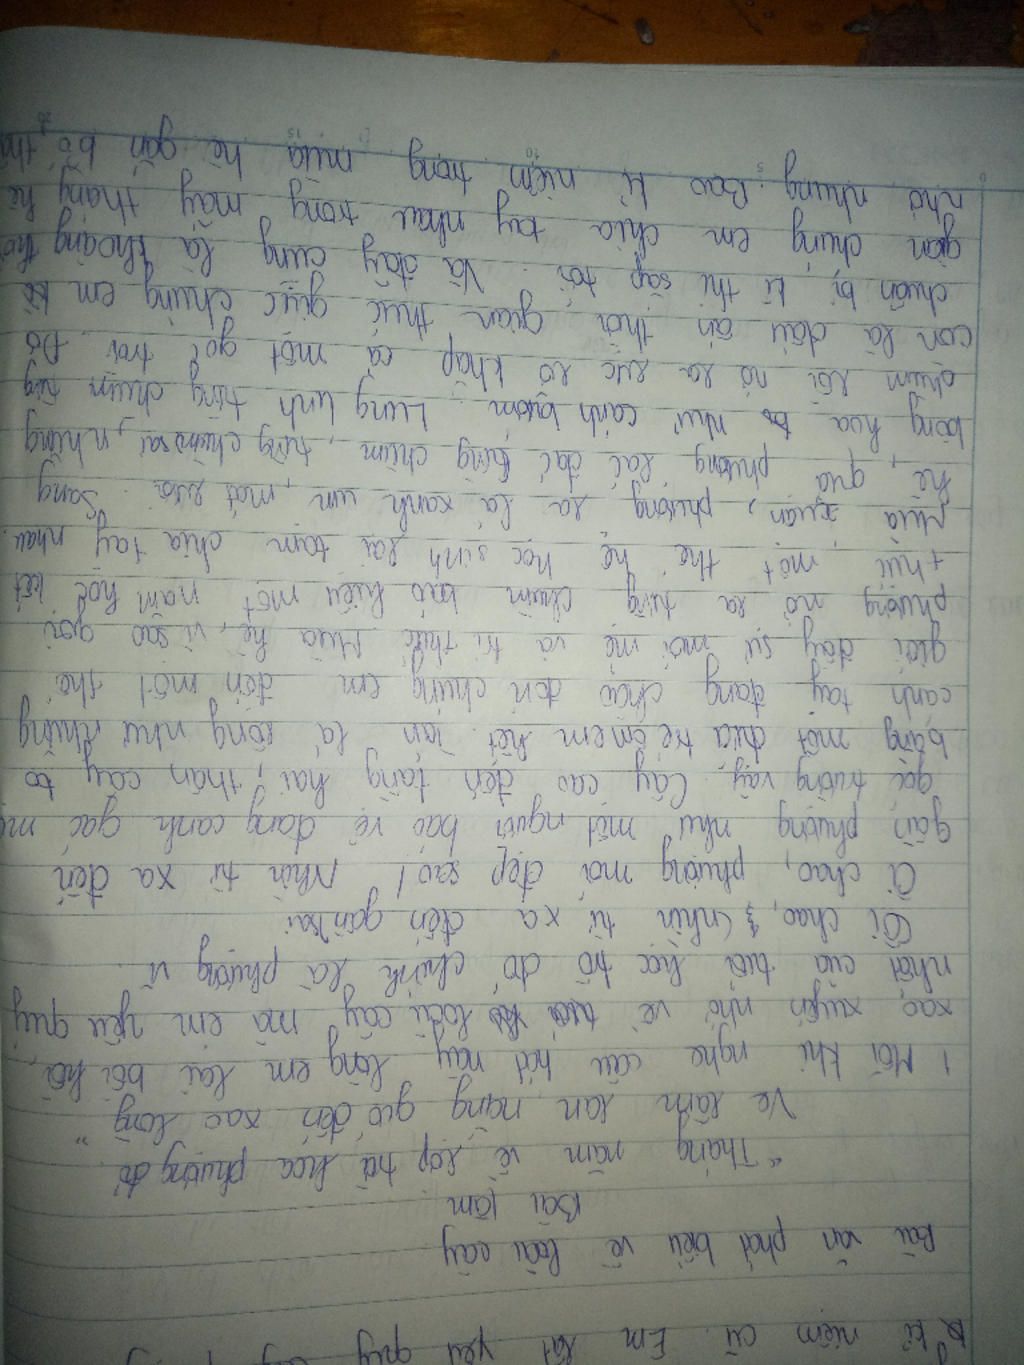 kỉ niệm cũ. Em rất yêu quý
Bài văn phát biểu về loài cây
Bài làm
"Tháng năm về lớp tớ hoa phượng đỏ
Ve lầm lan nắng gió đến xao lòng"
1 Mỗi khi nghe câu hát này lòng em lại bồi hồi,
xao xuyến nhớ về loài cây mà em yêu quý
nhất của tuổi học trò đó chính là phượng vĩ.
Ôi chao, nhìn từ xa đến gần
Ôi chao, phượng mới đẹp sao! Nhìn từ xa đến
gần phượng như một người bảo vệ đang canh gác
góc trường vậy. Cây cao đến tầng hai, thân cây to
bằng một đứa trẻ ôm em hết. Tán lá rộng như những
cánh tay đang chào đón chúng em đến một thế
giới đầy sự mới mẻ và tri thức. Mùa hè, vì sao gọi
phượng nở ra từng chùm báo hiệu một năm học kết
thúc, một thế hệ học sinh lại tạm chia tay nhau.
Mùa xuân, phượng ra lá xanh um, mát rượi. Sang
hè, quả phượng lác đác từng chùm, từng chùm sai, những
bông hoa như cánh bướm. Lung linh từng chùm từng
chùm rồi nở ra rực rỡ khắp cả một góc trời. Đó
còn là dấu ấn thời gian thúc giục chúng em
chuẩn bị kì thi sắp tới. Và đây cũng là khoảng thời
gian chúng em chia tay nhau trong mấy tháng hè
nhớ nhung. Bao kỉ niệm trong mùa hè gắn bó,